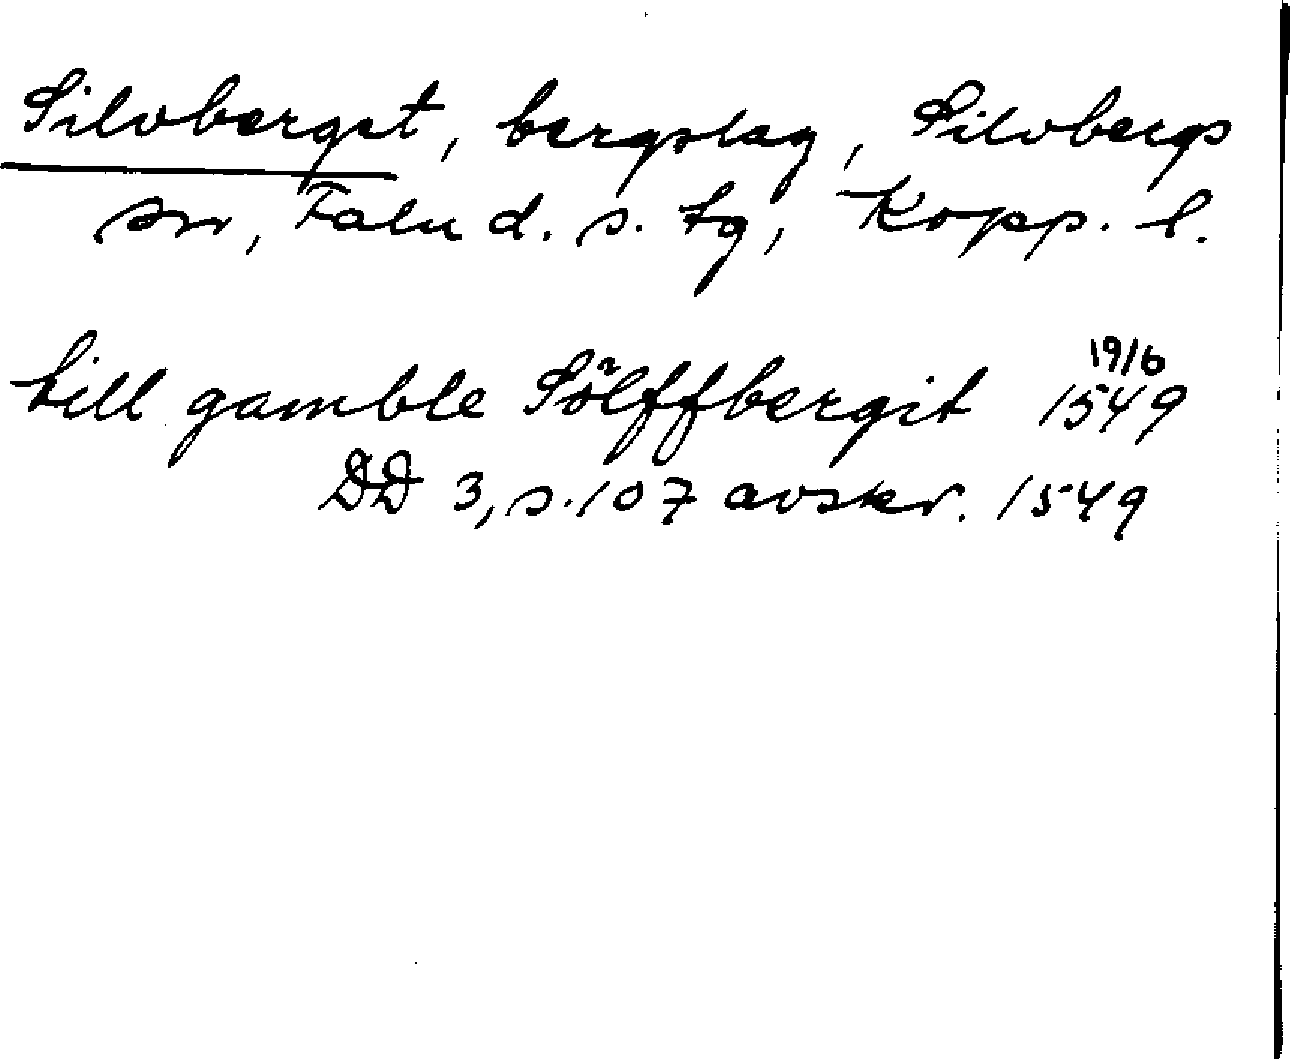 Silvberget, bergslag, Silvbergs
sn, Falu d. s. tg, Kopp. l.
till gamble Sölffbergit 19/6 1549
DD 3, s. 107 avskr. 1549